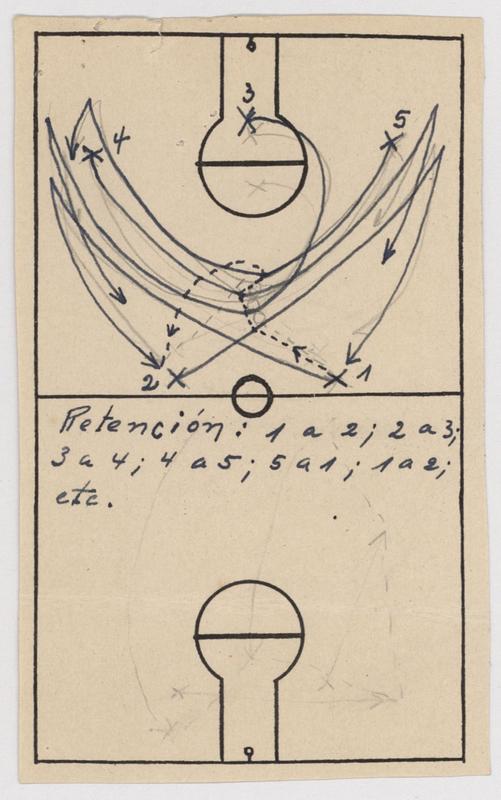 3
4
5
2
1
Retención: 1 a 2; 2 a 3;
3 a 4; 4 a 5; 5 a 1; 1 a 2;
etc.